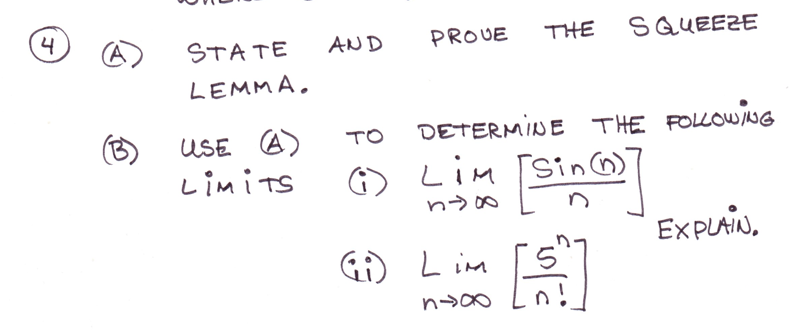 ④ (A) STATE AND PROVE THE SQUEEZE
LEMMA.
(B) USE (A) TO DETERMINE THE FOLLOWING
LiMiTS (i) Lim n→∞ [Sin(n)/n]
EXPLAIN.
(ii) Lim n→∞ [5^n/n!]